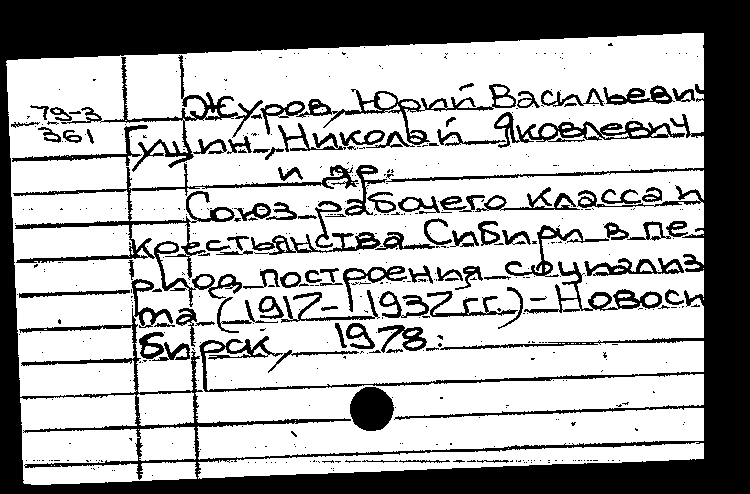 79-3
361
Журов, Юрий Васильевич
Гущин, Николай Яковлевич
и др.
Союз рабочего класса и
крестьянства Сибири в пе-
риод построения социализ
ма (1917-1937 гг.)-Новоси
бирск, 1978.